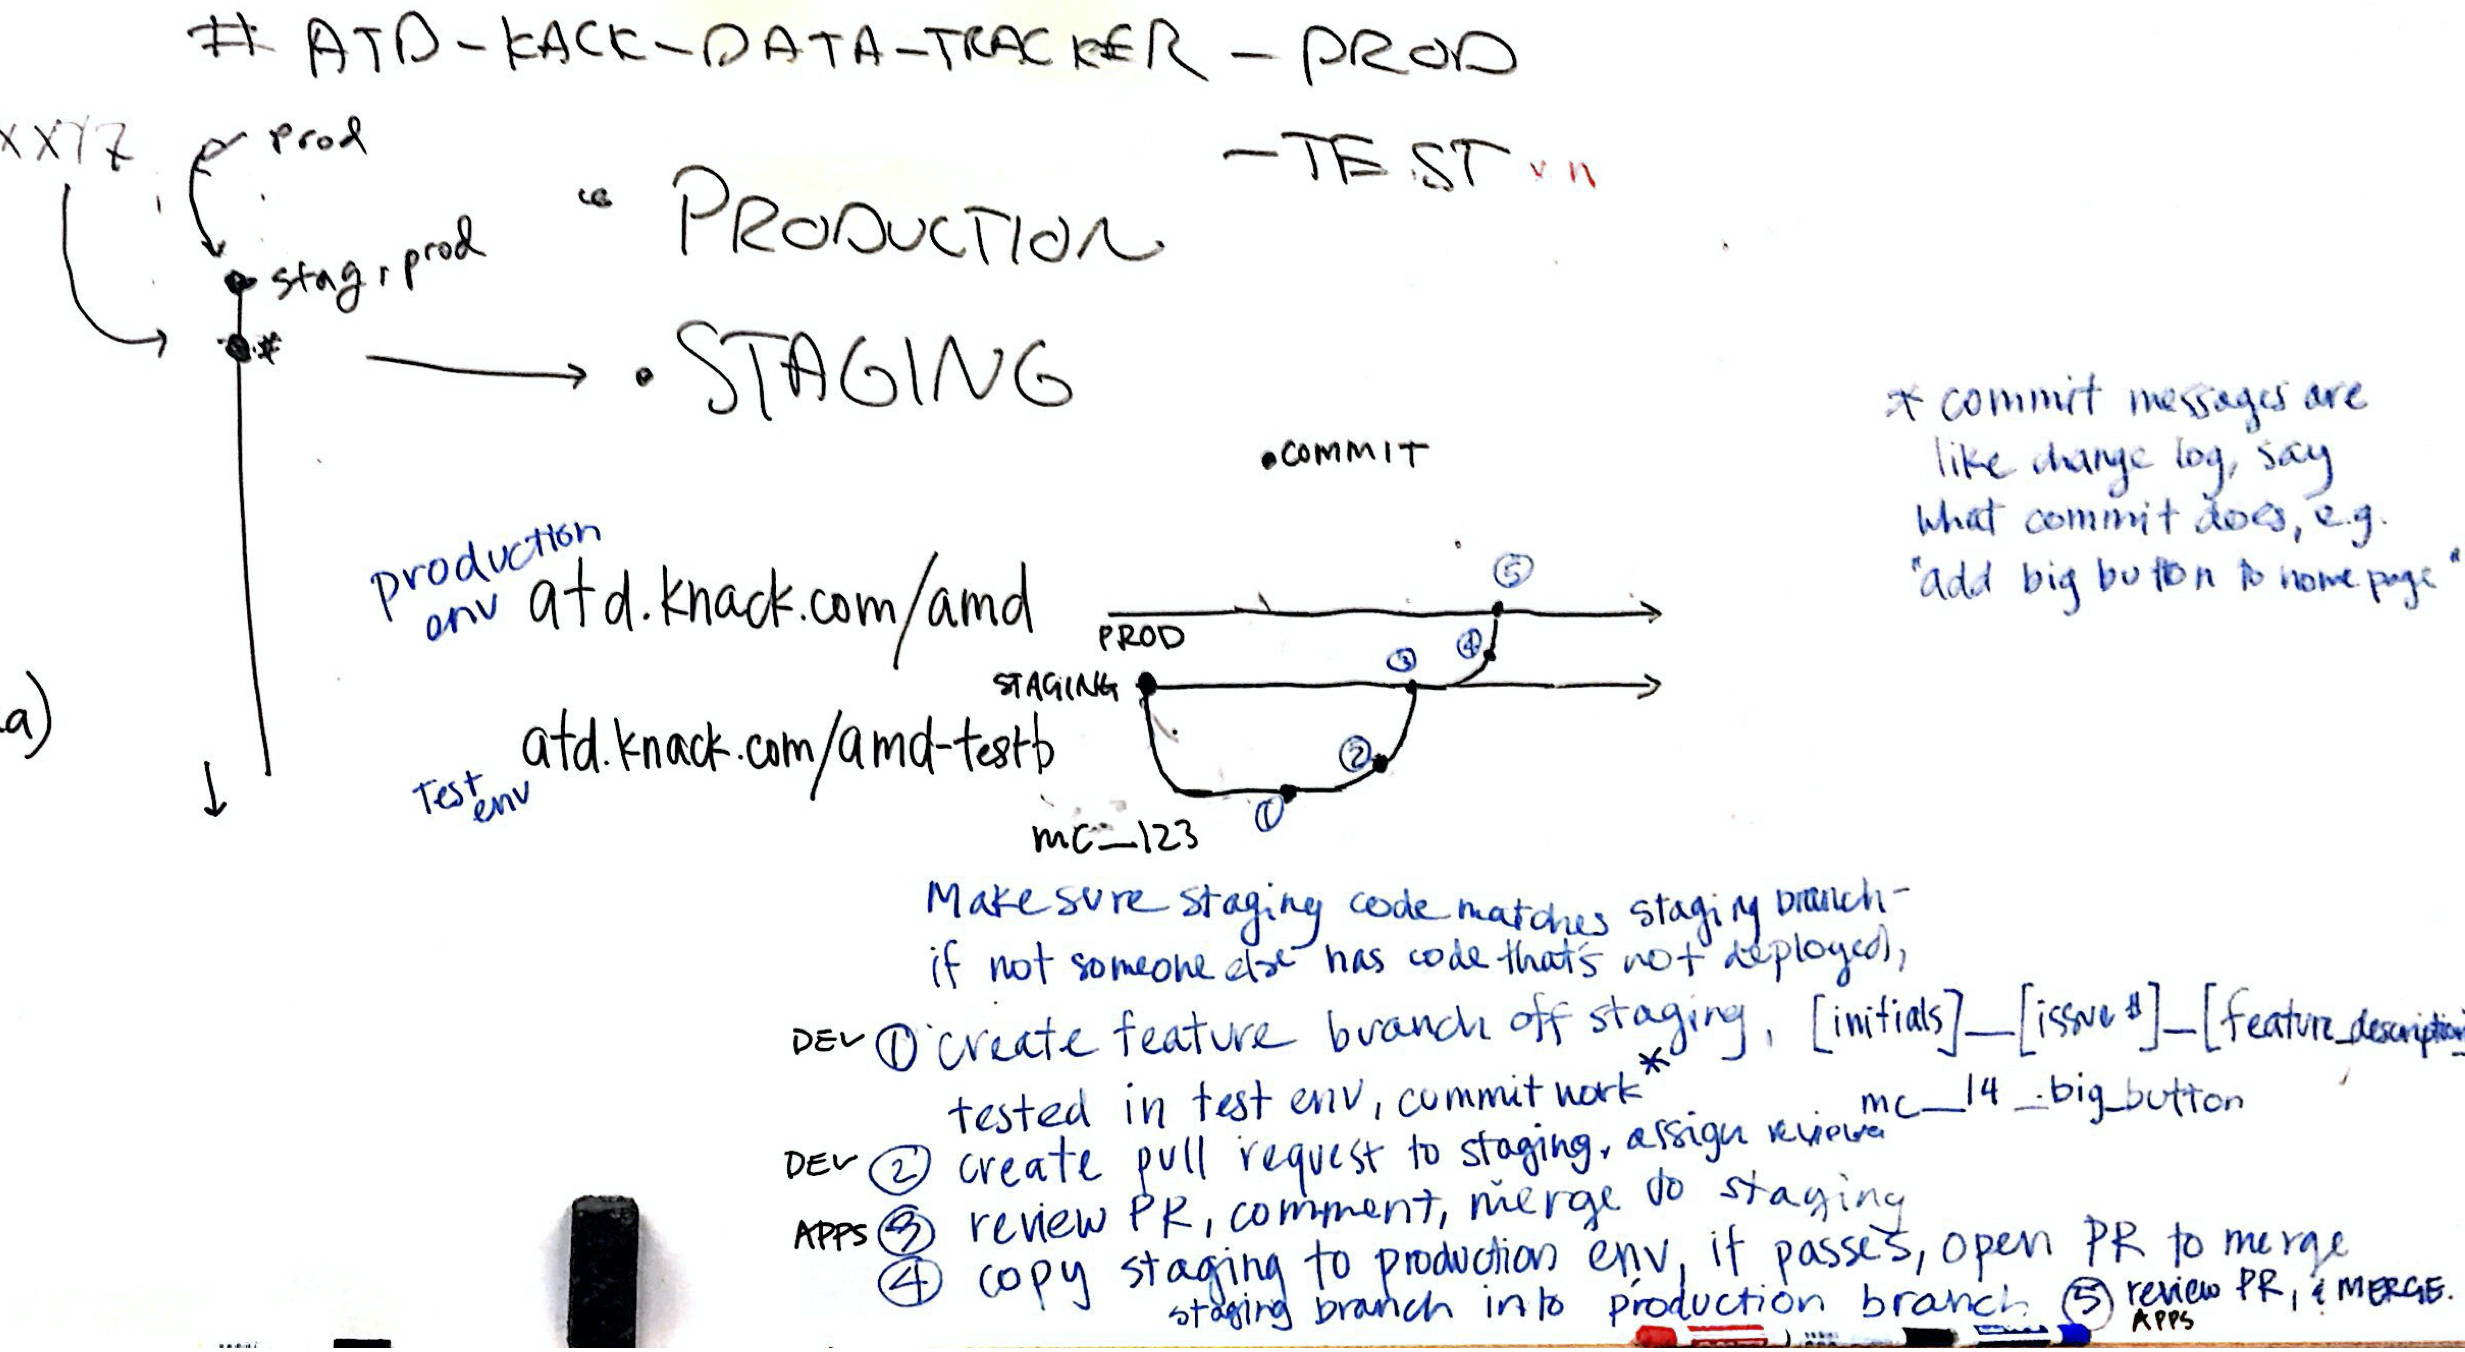 # ATD-KACK-DATA-TRACKER-PROD
-TEST
XXYZ
prod
stag, prod
PRODUCTION
#
STAGING
COMMIT
* commit messages are
like change log, say
what commit does, e.g.
"add big button to home page"
production
env
atd.knack.com/amd
PROD
STAGING
5
4
3
a)
atd.knack.com/amd-testb
Test
env
2
1
mc_123
Make sure staging code matches staging branch-
if not someone else has code that's not deployed,
DEV 1 create feature branch off staging, [initials]_[issue #]_[feature_description]
tested in test env, commit work*
mc_14_big_button
DEV 2 create pull request to staging, assign reviewer
APPS 3 review PR, comment, merge to staging
4 copy staging to production env, if passes, open PR to merge
staging branch into production branch
5 review PR, & MERGE.
APPS